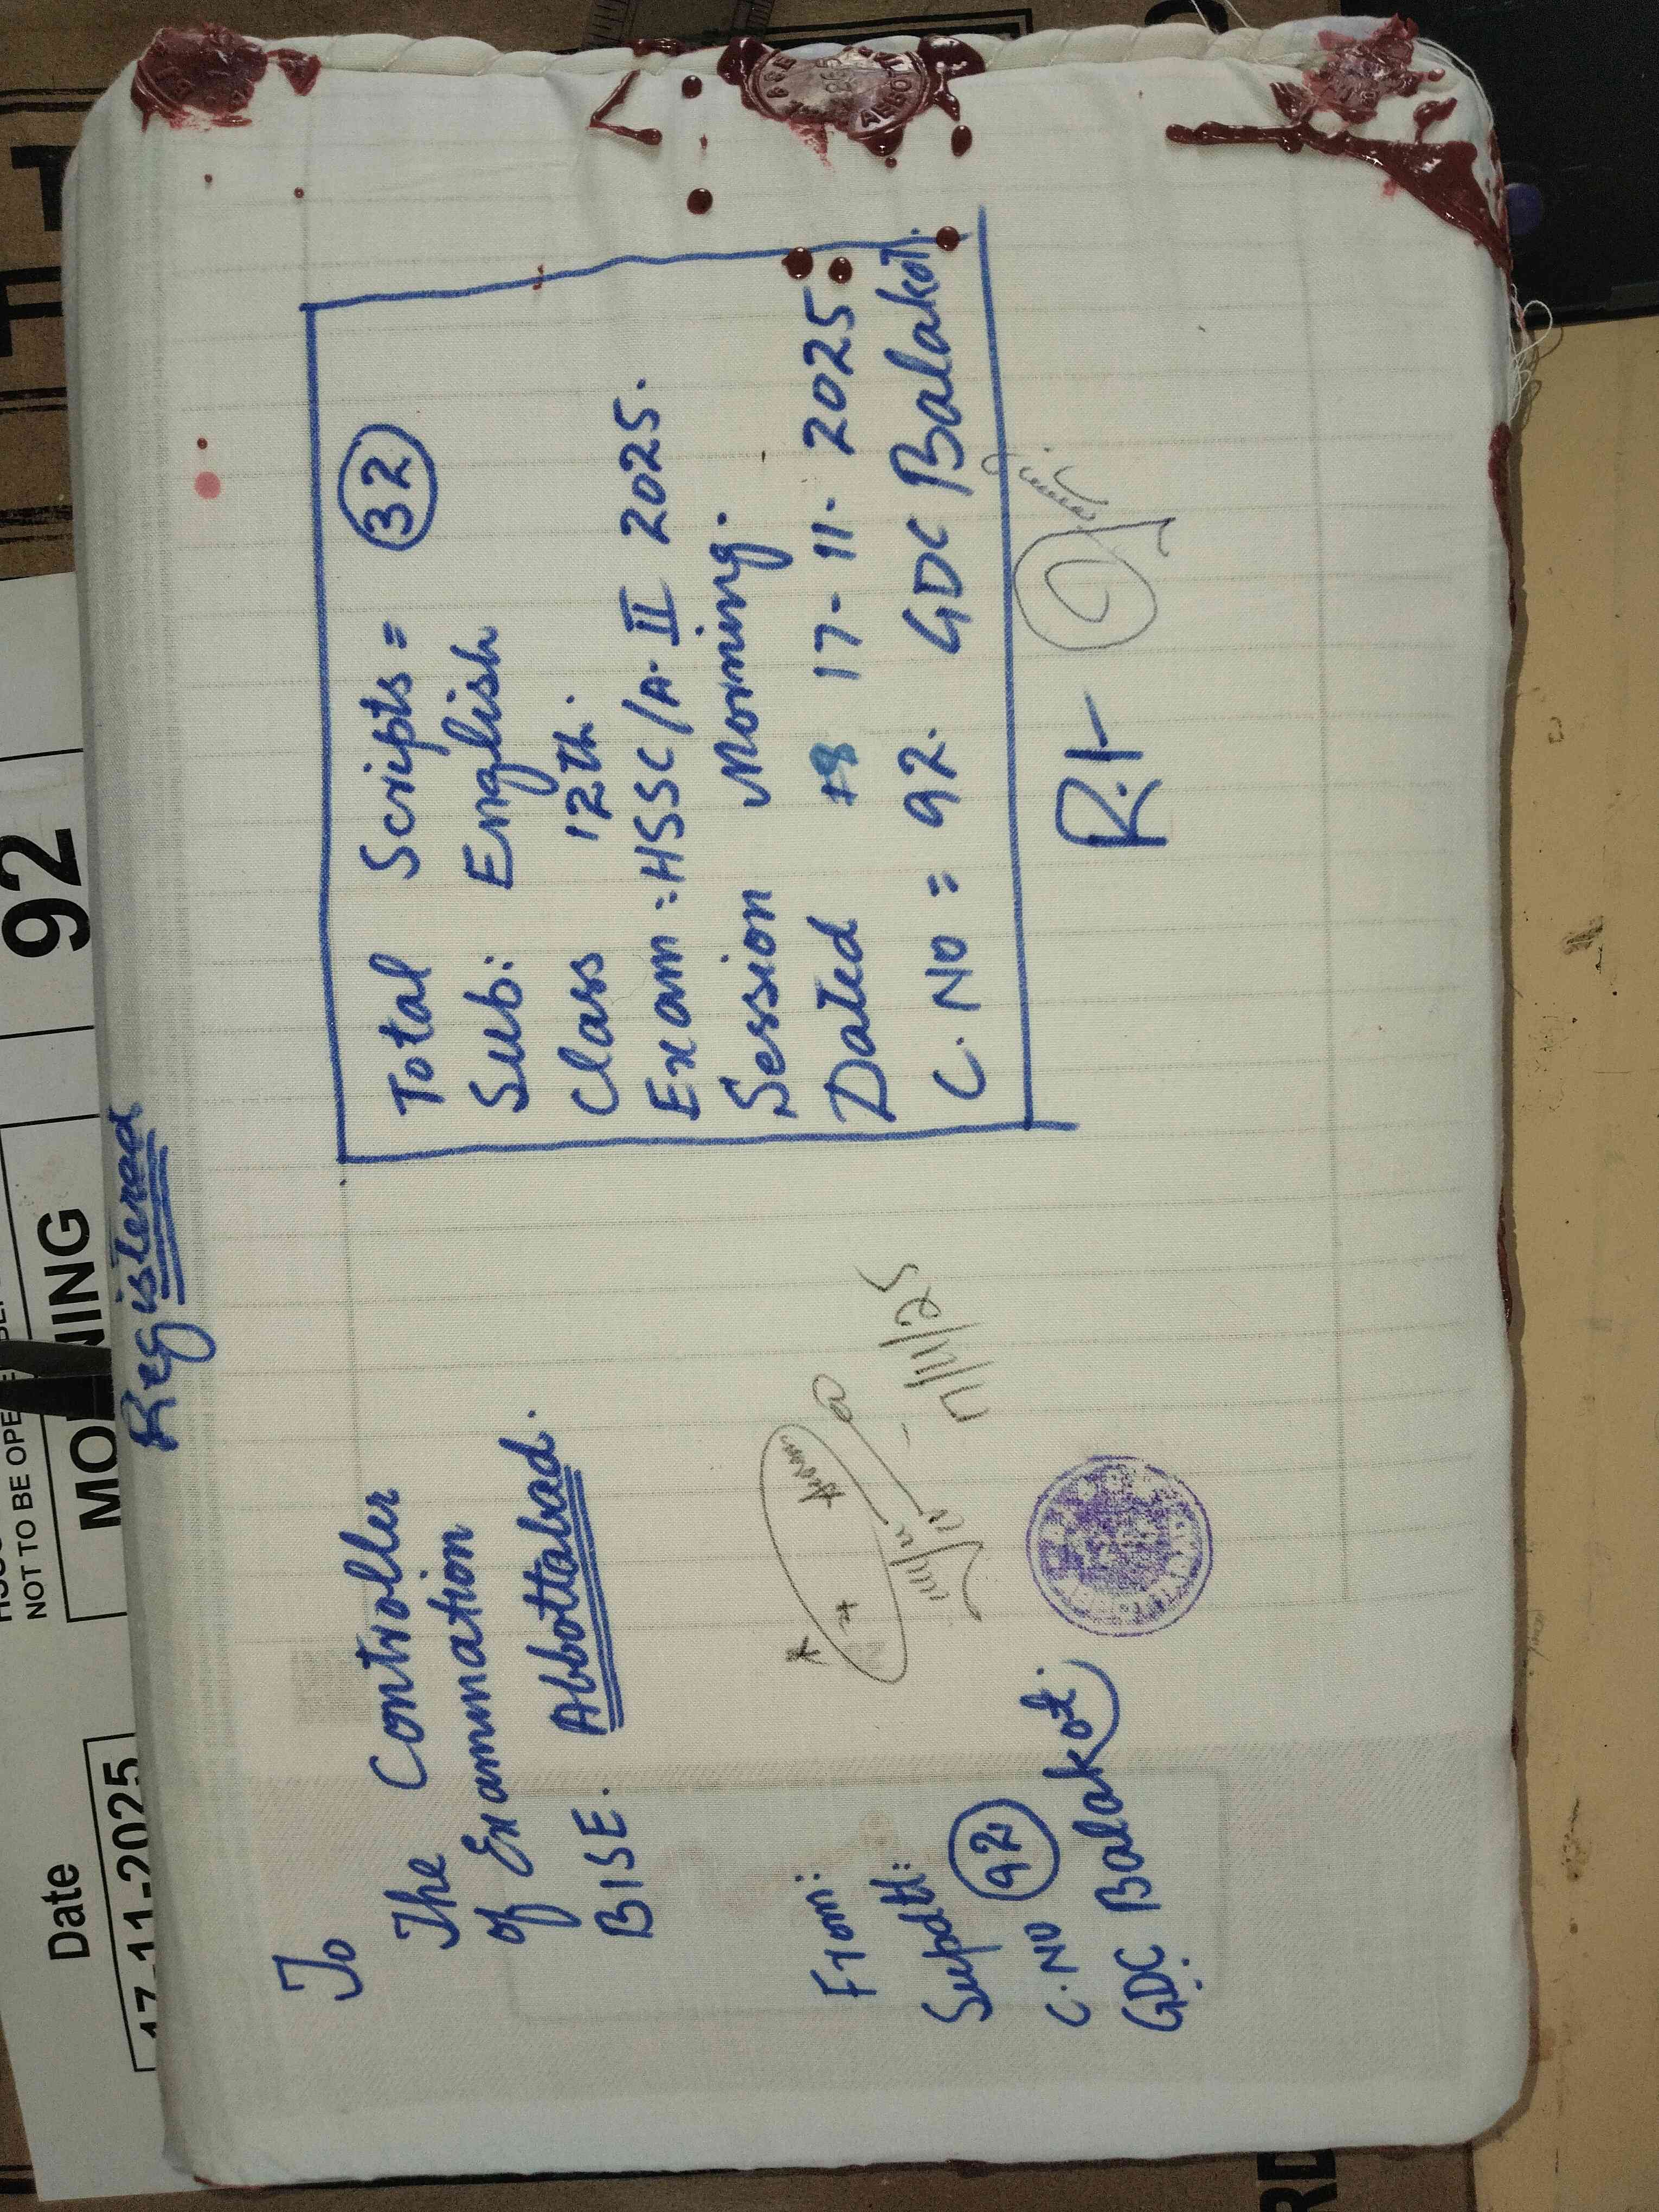 Date
17-11-2025
NOT TO BE OPE
MO NING
92
Registered
To
The Controller
of Examination
BISE. Abbottabad.
From:
Supdtt:
C.No 92
GDC Balakot.
17/11/25
Total Scripts = 32
Sub: English
Class 12th.
Exam :- HSSC/A-II 2025.
Session Morning.
Dated 17-11-2025
C.No = 92. GDC Balakot.
R.H